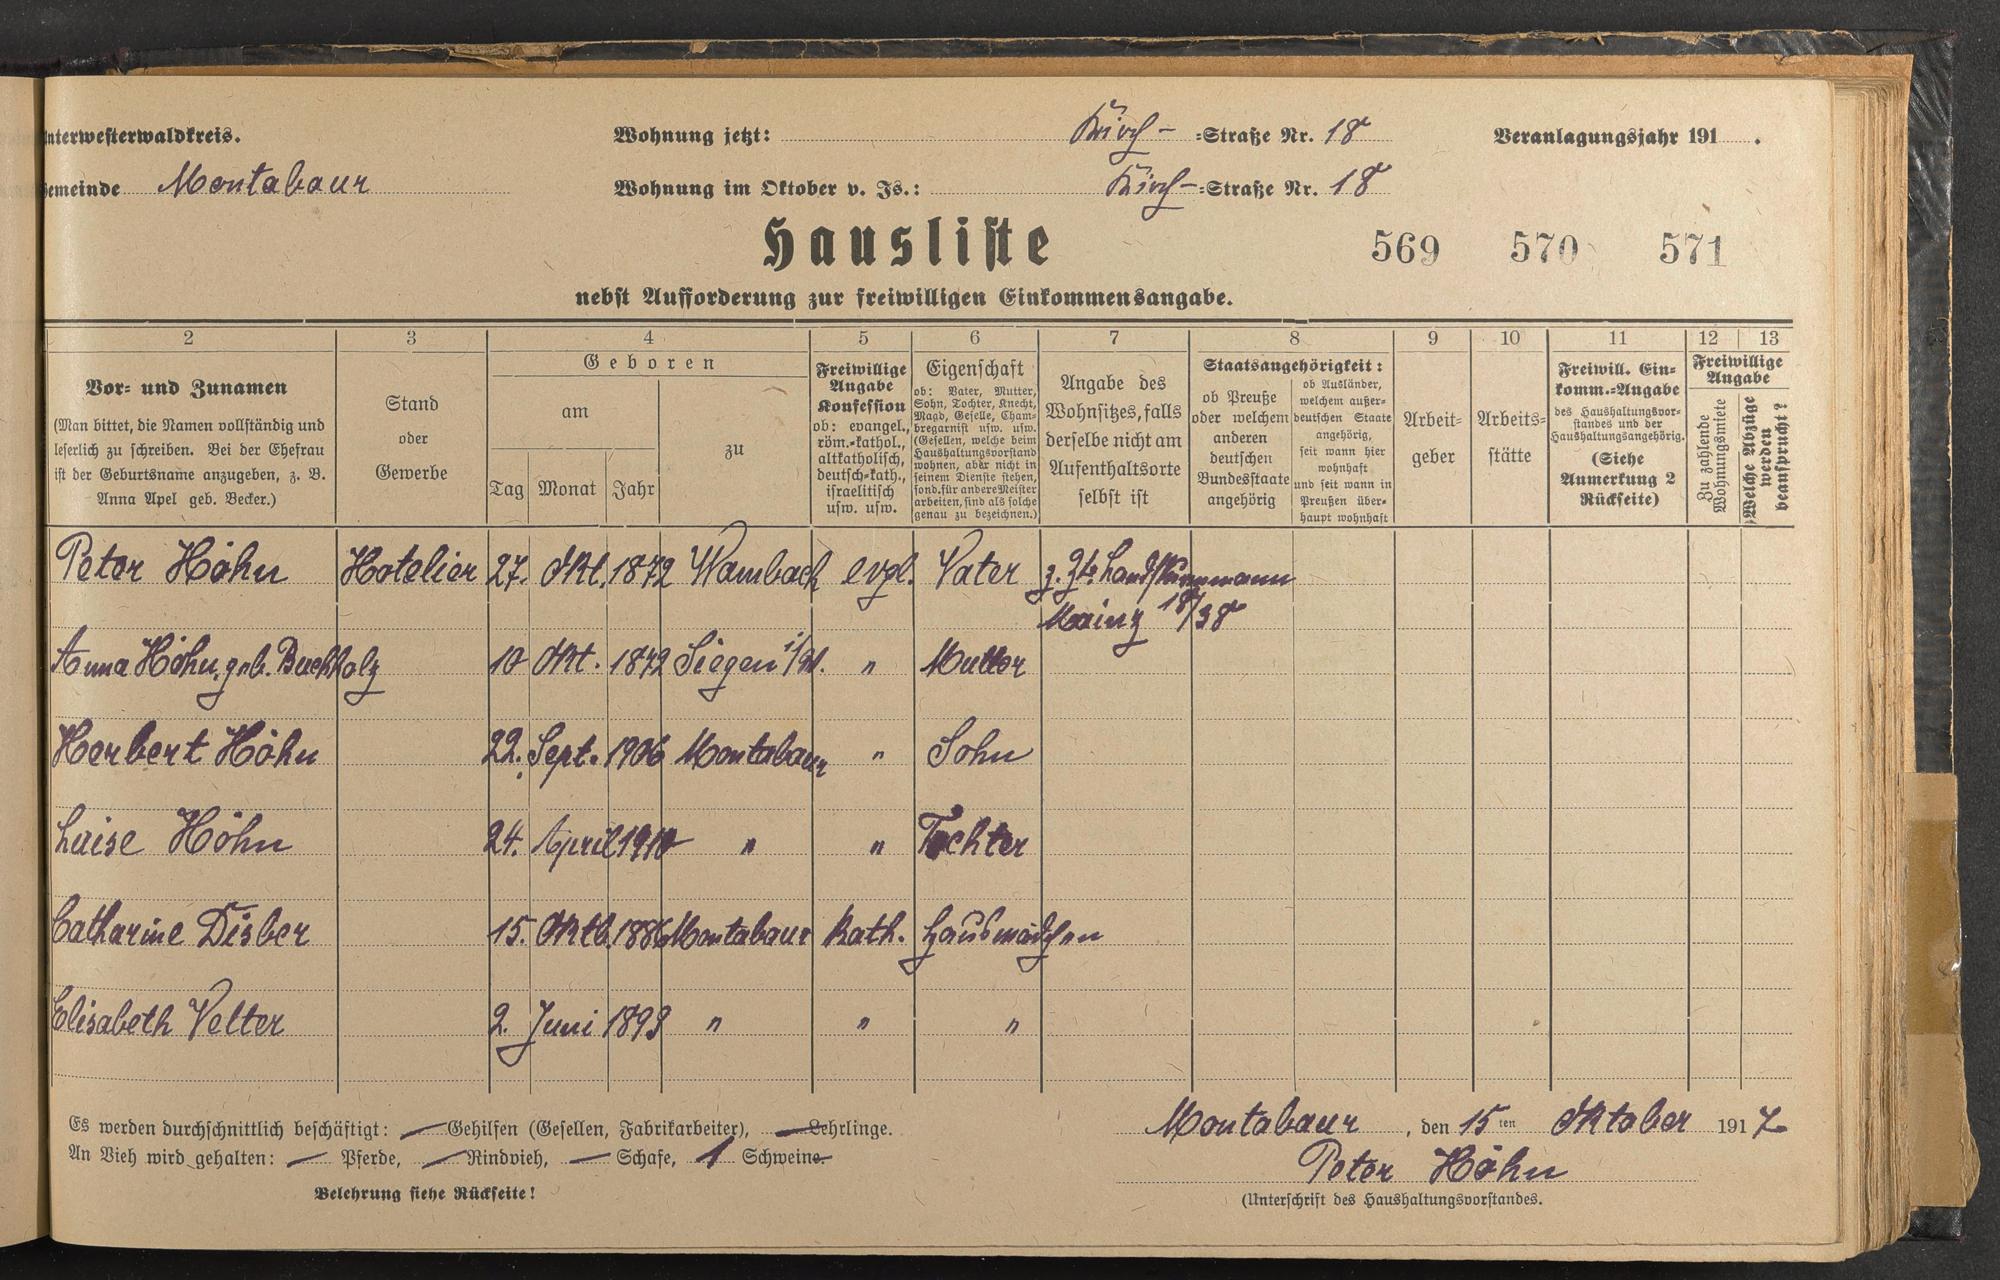 Unterwesterwaldkreis.
Wohnung jetzt: Kirch- =Straße Nr. 18
Veranlagungsjahr 191 .
Gemeinde Montabaur
Wohnung im Oktober v. Js.: Kirch- =Straße Nr. 18
Hausliste
569 570 571
nebst Aufforderung zur freiwilligen Einkommensangabe.
2 3 4 5 6 7 8 9 10 11 12 13
Vor- und Zunamen
(Man bittet, die Namen vollständig und
leserlich zu schreiben. Bei der Ehefrau
ist der Geburtsname anzugeben, z. B.
Anna Apel geb. Becker.)
Stand
oder
Gewerbe
Geboren
am
Tag Monat Jahr
zu
Freiwillige
Angabe
Konfession
ob: evangel.,
röm.-kathol.,
altkatholisch,
deutsch-kath.,
israelitisch
usw. usw.
Eigenschaft
ob: Vater, Mutter,
Sohn, Tochter, Knecht,
Magd, Geselle, Cham-
bregarnist usw. usw.
(Gesellen, welche beim
Haushaltungsvorstand
wohnen, aber nicht in
seinem Dienste stehen,
sond. für andere Meister
arbeiten, sind als solche
genau zu bezeichnen.)
Angabe des
Wohnsitzes, falls
derselbe nicht am
Aufenthaltsorte
selbst ist
Staatsangehörigkeit:
ob Preuße
oder welchem
anderen
deutschen
Bundesstaate
angehörig
ob Ausländer,
welchem außer-
deutschen Staate
angehörig,
seit wann hier
wohnhaft
und seit wann in
Preußen über-
haupt wohnhaft
Arbeit-
geber
Arbeits-
stätte
Freiwill. Ein-
komm.-Angabe
des Haushaltungsvor-
standes und der
Haushaltungsangehörig.
(Siehe
Anmerkung 2
Rückseite)
Freiwillige
Angabe
Zu zahlende
Wohnungsmiete
Welche Abzüge
werden
beansprucht?
Peter Höhn Hotelier 27. Okt. 1872 Wambach evgl. Vater z. Zt. Landsturmmann
Mainz 18/38
Anna Höhn, geb. Buchholz 10 Okt. 1872 Siegen i/W. " Mutter
Herbert Höhn 22. Sept. 1906 Montabaur " Sohn
Luise Höhn 24. April 1910 " " Tochter
Catharine Disber 15. Oktb. 1886 Montabaur kath. Hausmädchen
Elisabeth Velter 2. Juni 1893 " " "
Es werden durchschnittlich beschäftigt: — Gehilfen (Gesellen, Fabrikarbeiter), — Lehrlinge.
An Vieh wird gehalten: — Pferde, — Rindvieh, — Schafe, 1 Schweine.
Belehrung siehe Rückseite!
Montabaur, den 15ten Oktober 1917
Peter Höhn
(Unterschrift des Haushaltungsvorstandes.